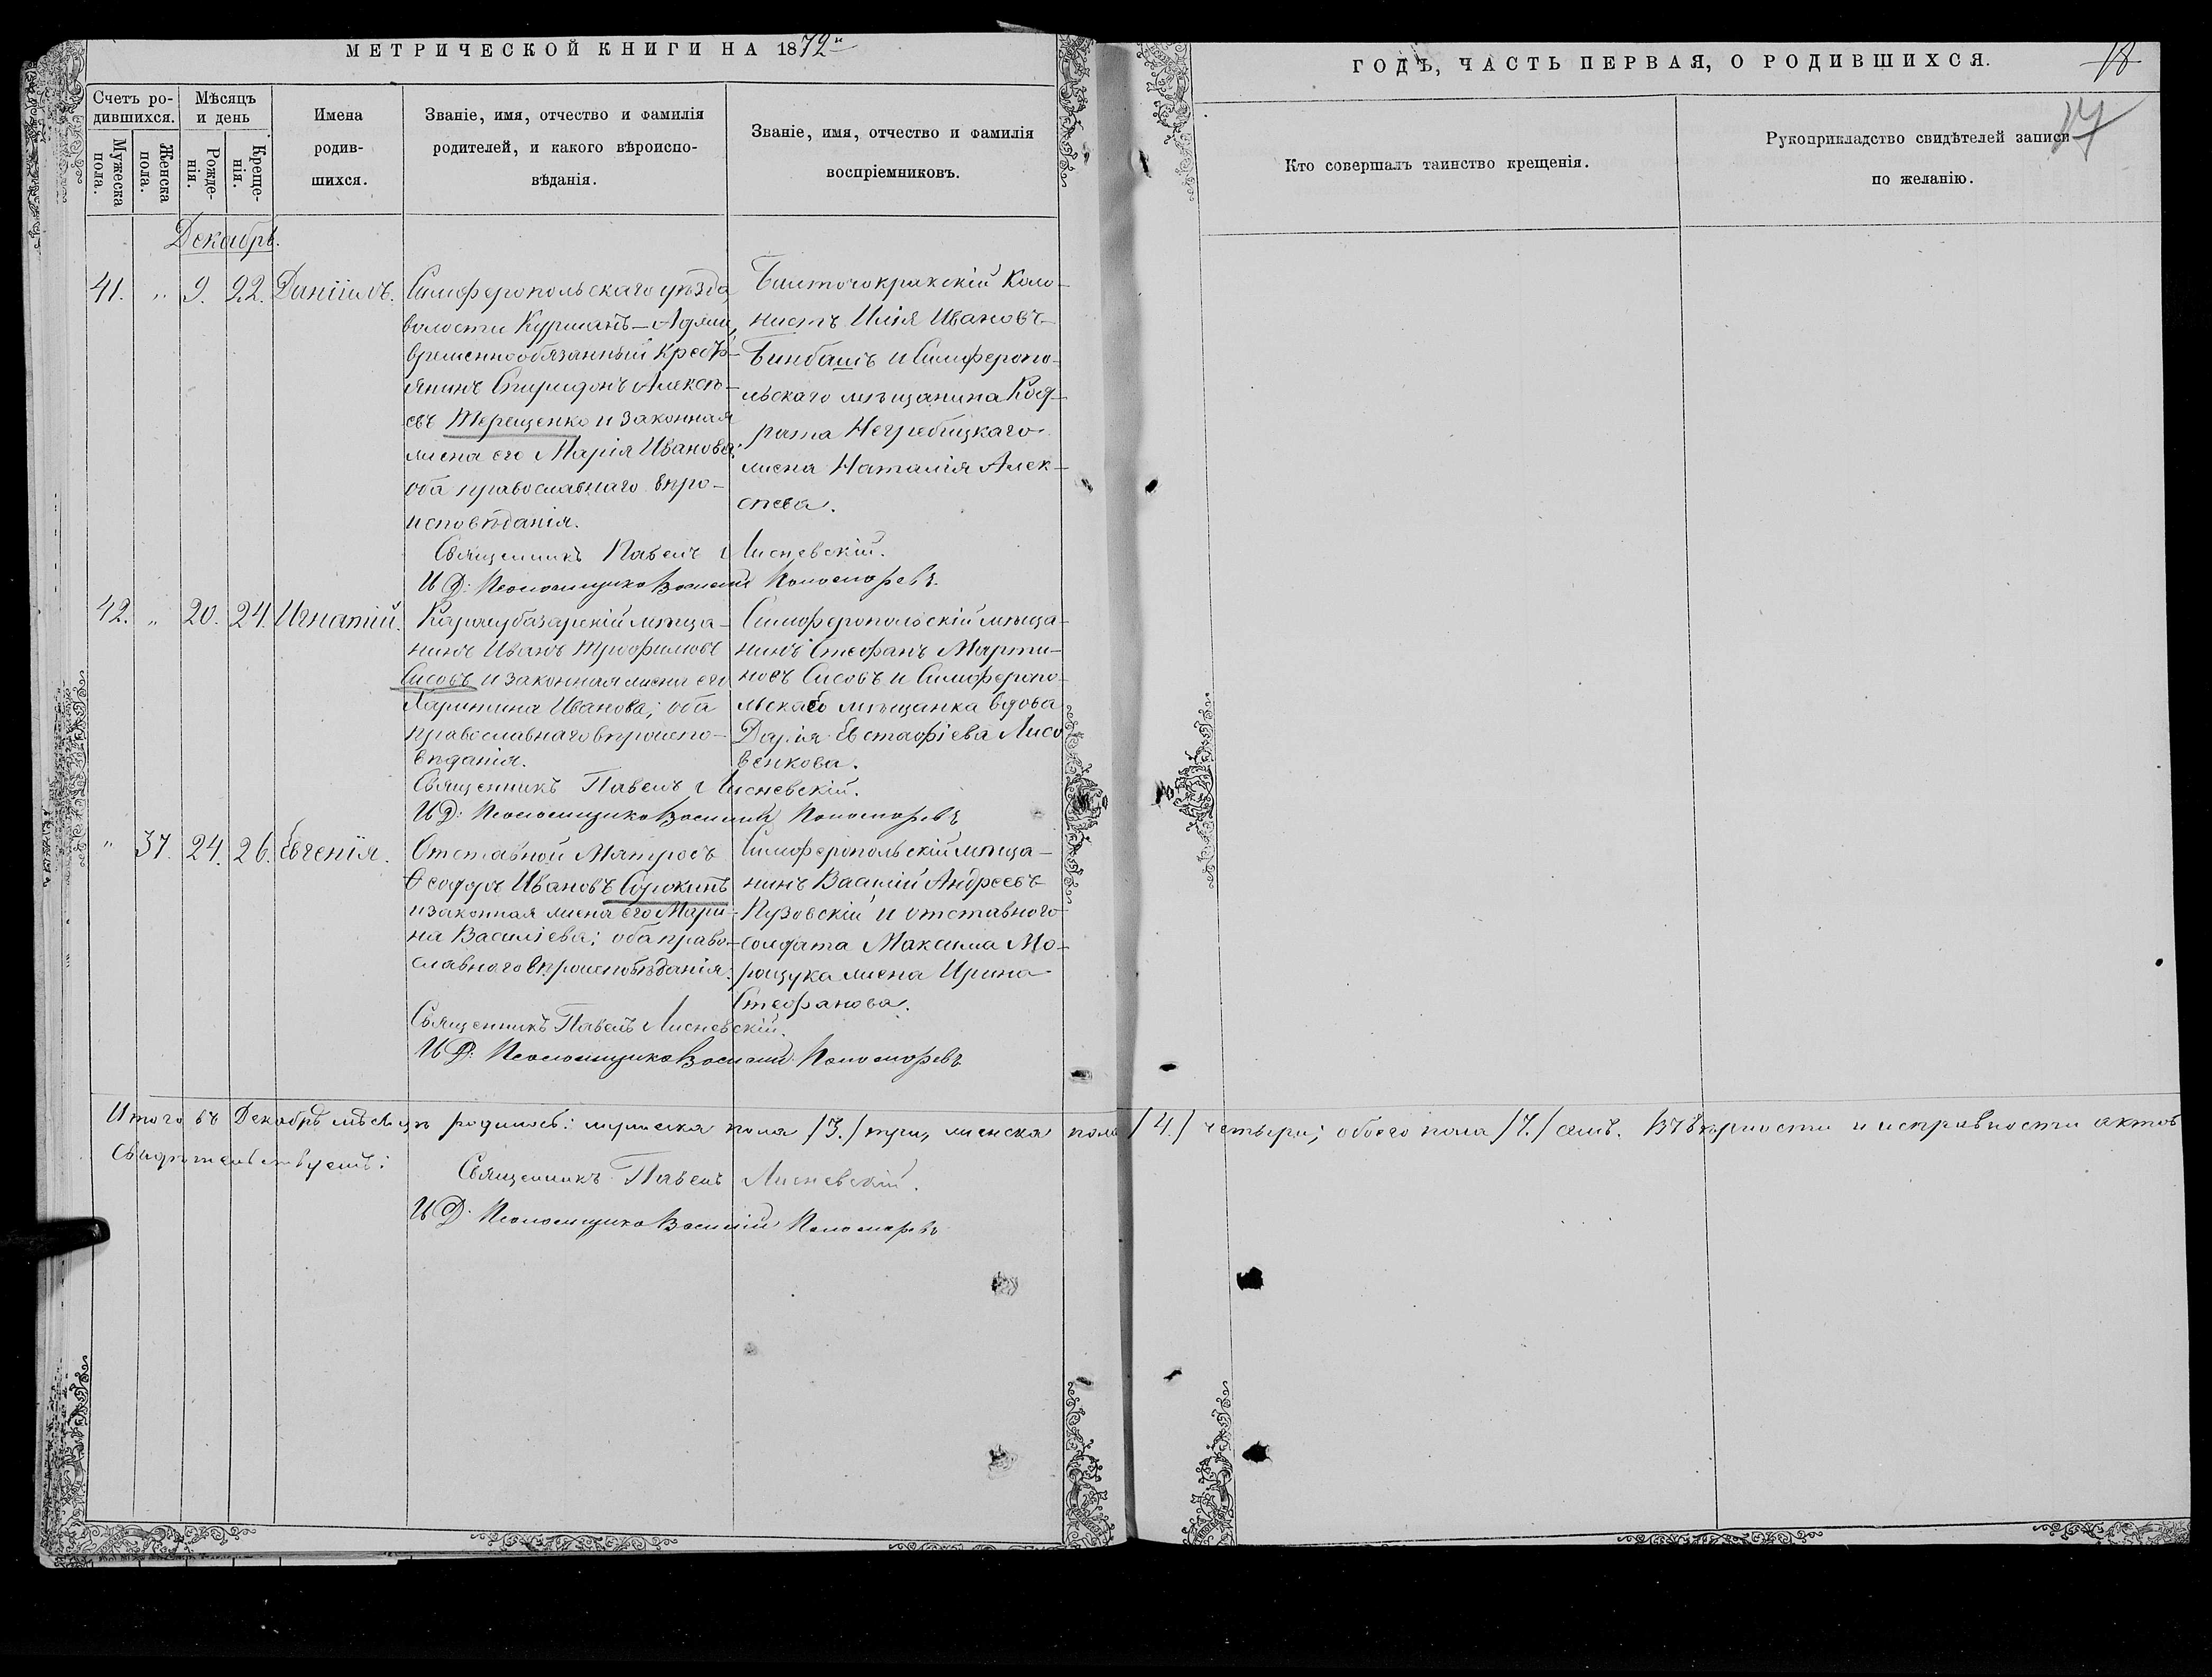 МЕТРИЧЕСКОЙ КНИГИ НА 1872й
ГОДЪ, ЧАСТЬ ПЕРВАЯ, О РОДИВШИХСЯ.
18
17
Счетъ ро-
дившихся.
Мужеска
пола.
Женска
пола.
Мѣсяцъ
и день
Рожде-
нія.
Креще-
нія.
Имена
родив-
шихся.
Званіе, имя, отчество и фамилія
родителей, и какого вѣроиспо-
вѣданія.
Званіе, имя, отчество и фамилія
воспріемниковъ.
Кто совершалъ таинство крещенія.
Рукоприкладство свидѣтелей записи
по желанію.
Декабрь.
41. " 9. 22. Даніилъ.
Симферопольскаго уѣзда,
волости Курманъ-
временнообязанный крестъ-
янинъ Спиридонъ Алексѣ-
евъ Терещенко и законная
жена его Марія Иванова;
оба православнаго вѣро-
исповѣданія.
Коло-
нистъ Илія Ивановъ
Бинбашъ и Симферопо-
льскаго мѣщанина Код-
рата Негребицкаго
жена Наталія Алек-
сѣева.
Священникъ Павелъ Лисневскій.
И Д: Псаломщика Василій Пономоревъ
42. " 20. 24. Игнатій.
Карасубазарскій мѣща-
нинъ Иванъ Трофимовъ
Сисовъ и законная жена его
Харитина Иванова; оба
православнаго вѣроиспо-
вѣданія.
Симферопольскій мѣща-
нинъ Стефанъ Марти-
новъ Сисовъ и Симферопо-
льская мѣщанка вдова
Дарія Евстафіева Лисо
венкова.
Священникъ Павелъ Лисневскій.
И Д: Псаломщика Василій Пономоревъ
" 37. 24. 26. Евгенія.
Отставной Матросъ
Ѳеодоръ Ивановъ Сорокинъ
и законная жена его Мари-
на Василіева; оба право-
славного вѣроисповѣданія.
Симферопольскій мѣща-
нинъ Василій Андреевъ
Пузовскій и отставного
солдата Максима Мо-
рощука жена Ирина
Стефанова.
Священникъ Павелъ Лисневскій.
И Д: Псаломщика Василій Пономоревъ
Итого въ Декабрѣ мѣсяцѣ родилось: мужеска пола /3./ три, женска пола /4./ четыри; обоего пола /7./ семь. Въ вѣрности и исправности актовъ
свидѣтельствуемъ:
Священникъ Павелъ Лисневскій.
И Д: Псаломщика Василій Пономоревъ